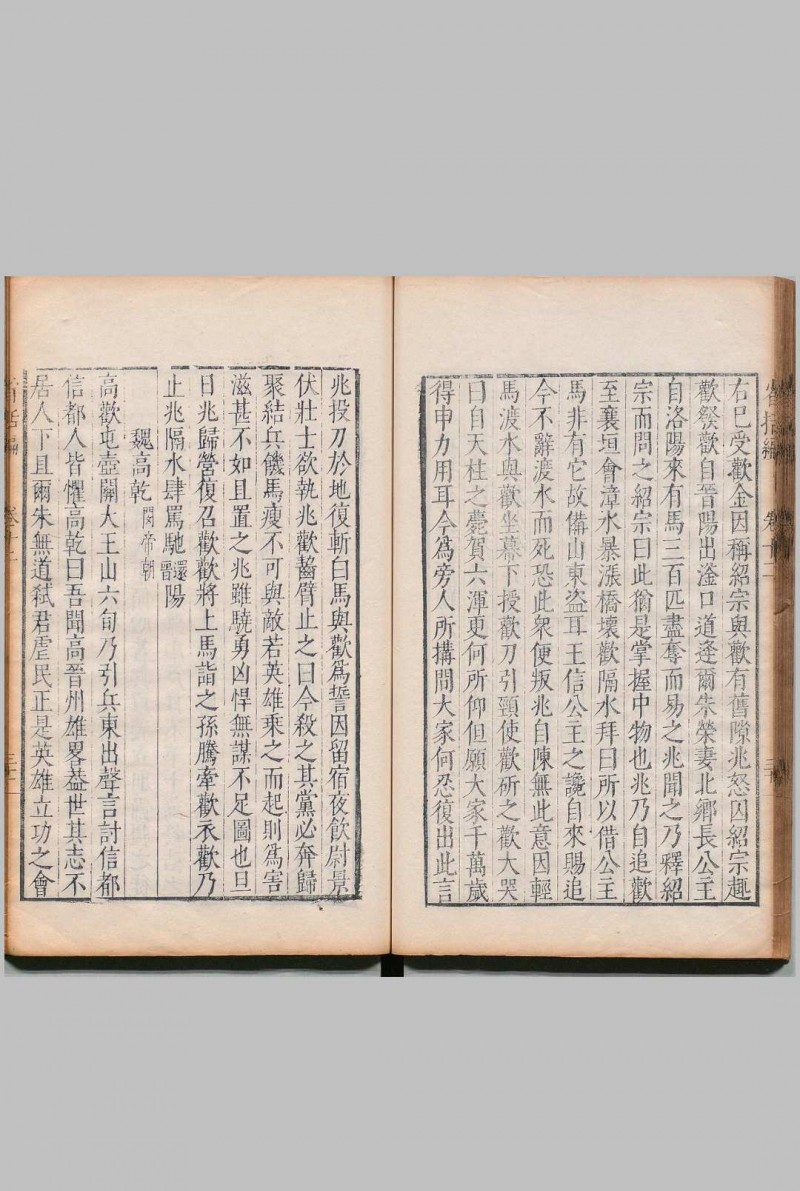 右已受歡金因稱紹宗與歡有舊隙兆怒囚紹宗趣
歡發歡自晉陽出滏口道逢爾朱榮妻北鄉長公主
自洛陽來有馬三百匹盡奪而易之兆聞之乃釋紹
宗而問之紹宗曰此猶是掌握中物也兆乃自追歡
至襄垣會漳水暴漲橋壞歡隔水拜曰所以借公主
馬非有它故備山東盜耳王信公主之讒自來賜追
今不辭渡水而死恐此衆便叛兆自陳無此意因輕
馬渡水與歡坐幕下授歡刀引頸使歡斫之歡大哭
曰自天柱之薨賀六渾更何所仰但願大家千萬歲
得申力用耳今爲旁人所搆問大家何忍復出此言
兆投刀於地復斬白馬與歡爲誓因留宿夜飲尉景
伏壯士欲執兆歡齧臂止之曰今殺之其黨必奔歸
聚結兵饑馬瘦不可與敵若英雄乘之而起則爲害
滋甚不如且置之兆雖驍勇凶悍無謀不足圖也旦
日兆歸營復召歡歡將上馬詣之孫騰牽歡衣歡乃
止兆隔水肆罵馳還晉陽
魏高乾 閔帝朝
高歡屯壺關大王山六旬乃引兵東出聲言討信都
信都人皆懼高乾曰吾聞高晉州雄畧葢世其志不
居人下且爾朱無道弑君虐民正是英雄立功之會